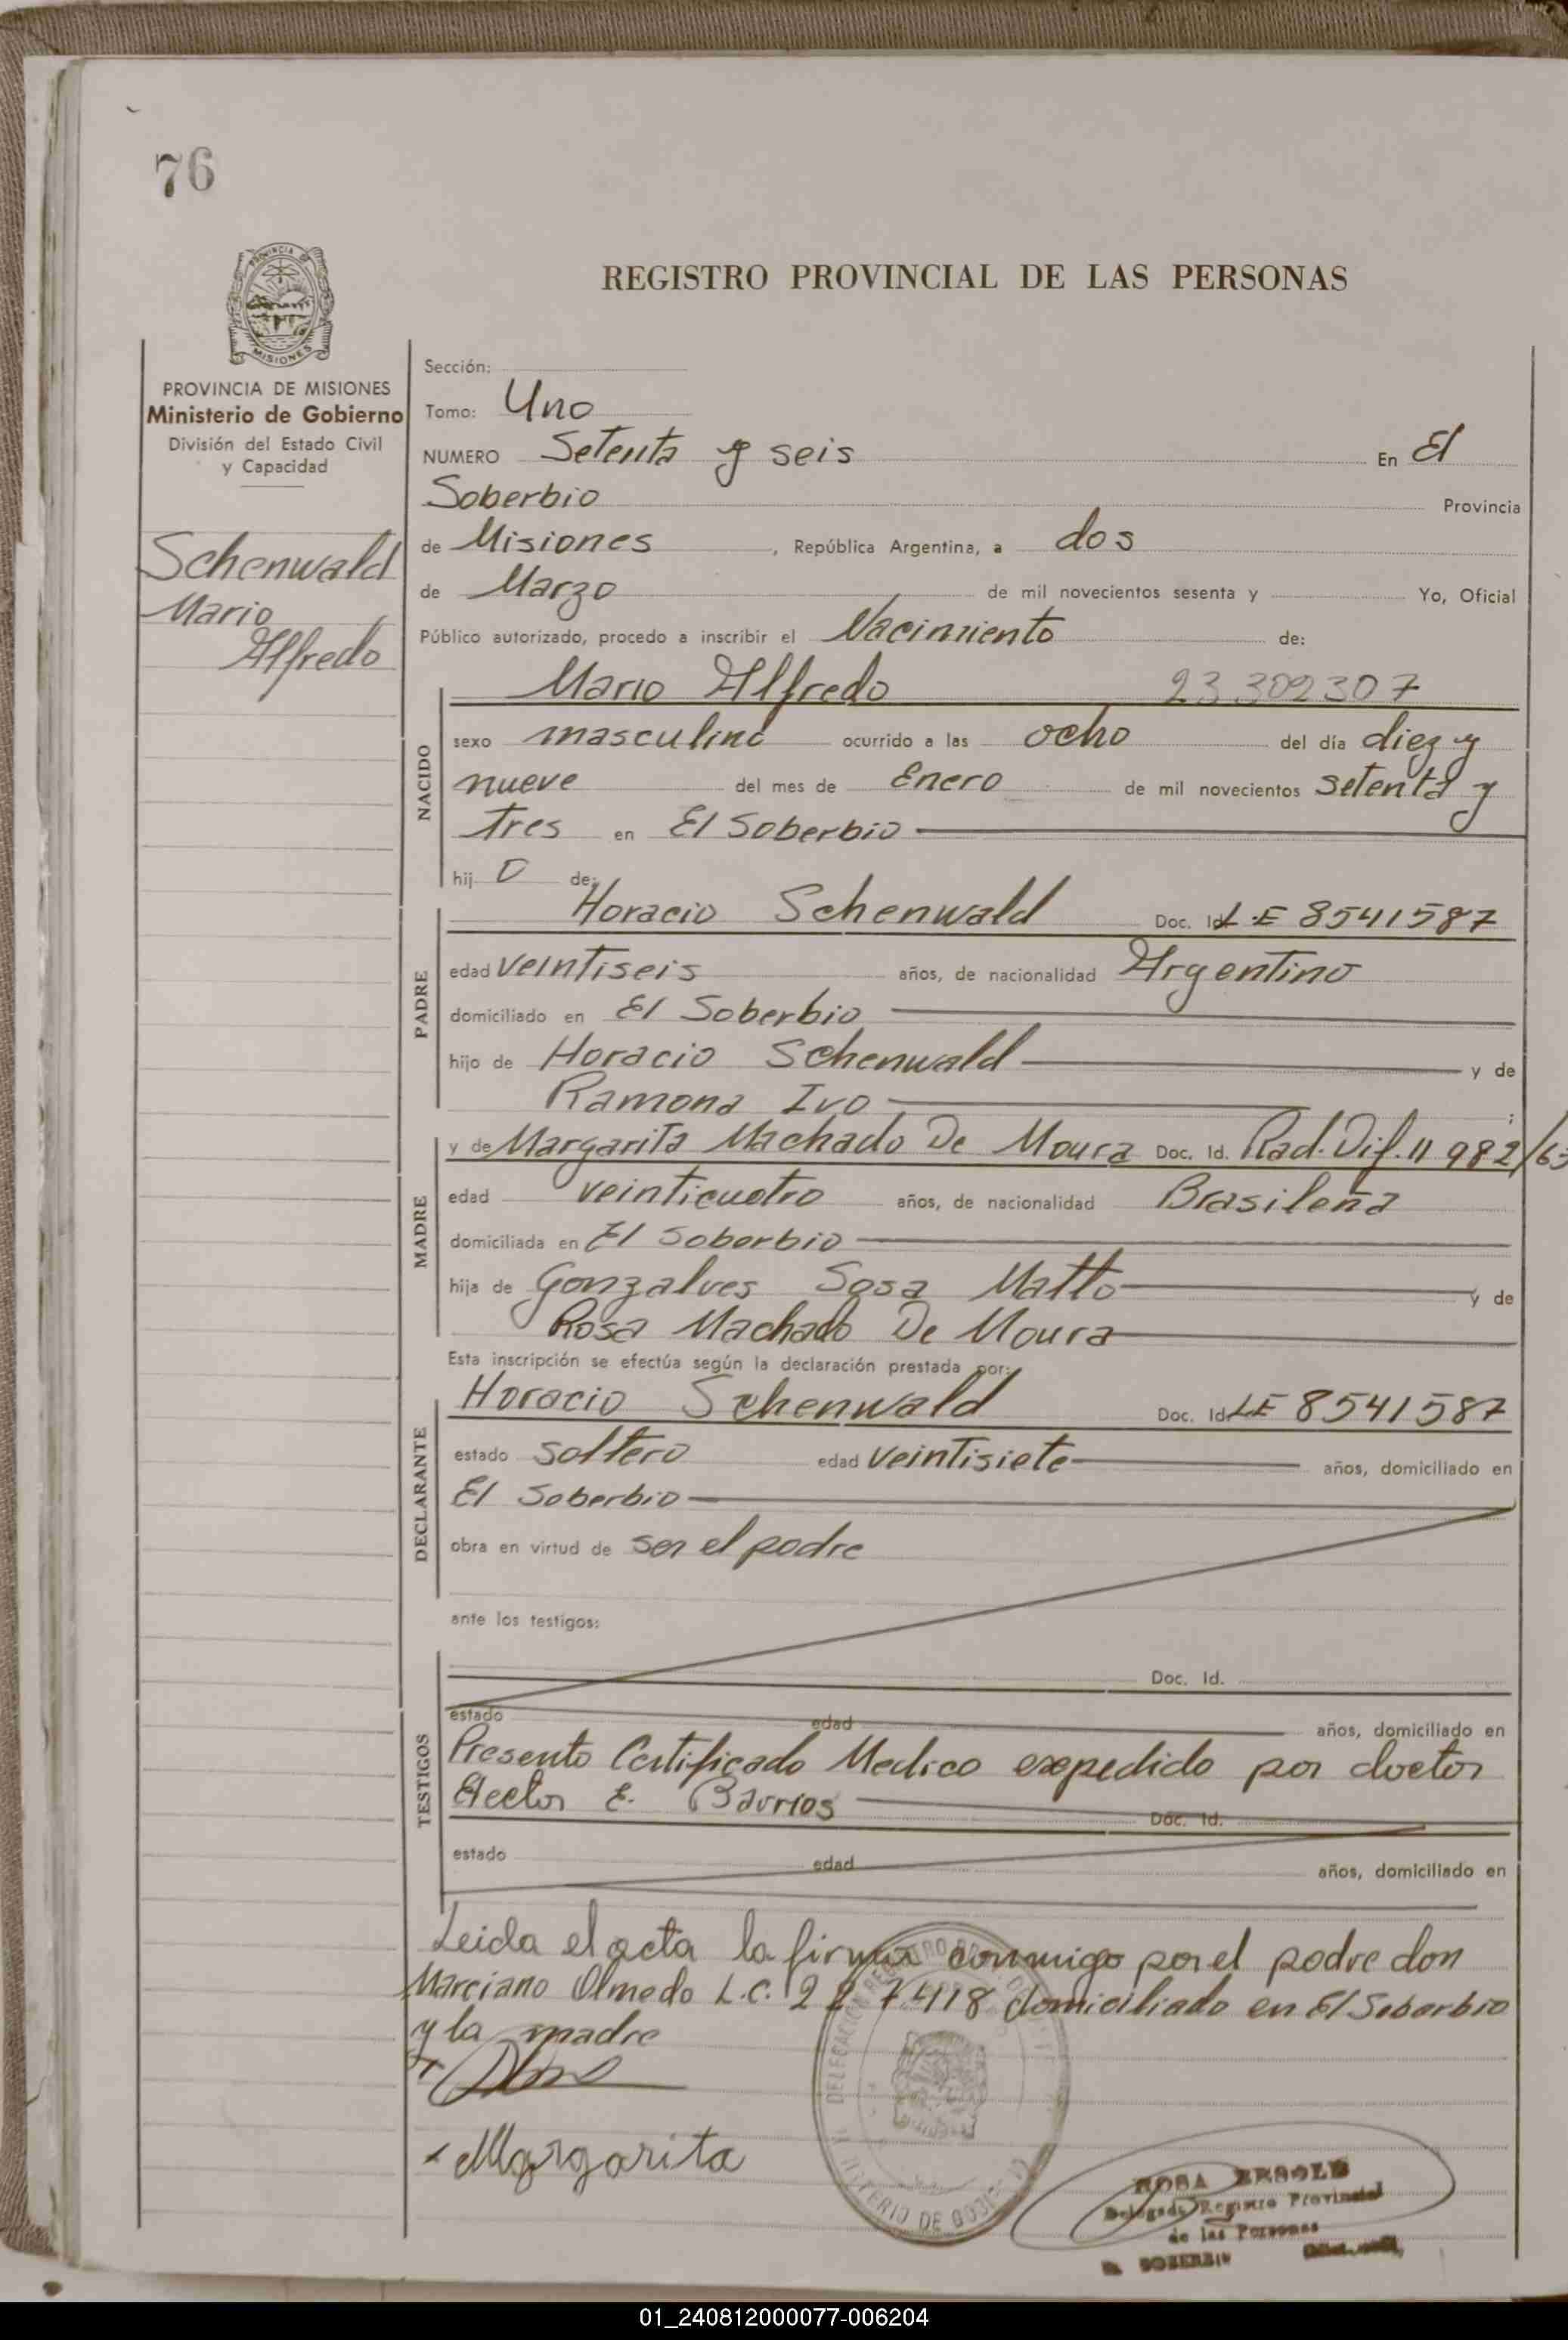 76
REGISTRO PROVINCIAL DE LAS PERSONAS
PROVINCIA DE MISIONES
MISIONES
PROVINCIA DE MISIONES
Ministerio de Gobierno
División del Estado Civil
y Capacidad
Schenwald
Mario
Alfredo
Sección:
Tomo: Uno
NUMERO Setenta y seis En El
Soberbio Provincia
de Misiones, República Argentina, a dos
de Marzo de mil novecientos sesenta y Yo, Oficial
Público autorizado, procedo a inscribir el Nacimiento de:
Mario Alfredo 23302307
NACIDO
sexo masculino ocurrido a las ocho del día diez y
nueve del mes de Enero de mil novecientos setenta y
tres en El Soberbio
hij o de:
PADRE
Horacio Schenwald Doc. Id. L.E 8541587
edad veintiseis años, de nacionalidad Argentino
domiciliado en El Soberbio
hijo de Horacio Schenwald y de
Ramona Ivo ;
MADRE
y de Margarita Machado De Moura Doc. Id. Rad. Dif. 11982/63
edad veinticuatro años, de nacionalidad Brasileña
domiciliada en El Soberbio
hija de Gonzalves Sosa Matto y de
Rosa Machado De Moura
Esta inscripción se efectúa según la declaración prestada por:
DECLARANTE
Horacio Schenwald Doc. Id. LE 8541587
estado soltero edad veintisiete años, domiciliado en
El Soberbio
obra en virtud de ser el padre
ante los testigos:
TESTIGOS
Doc. Id.
estado edad años, domiciliado en
Presento Certificado Medico expedido por doctor
Hector E. Barrios Doc. Id.
estado edad años, domiciliado en
Leida el acta la firma conmigo por el padre don
Marciano Olmedo L.C. 227418 domiciliado en El Soberbio
y la madre
Margarita
DELEGACION REGISTRO
MINISTERIO DE GOBIERNO
ROSA
Delegada Registro Provincial
de las Personas
EL SOBERBIO
01_240812000077-006204